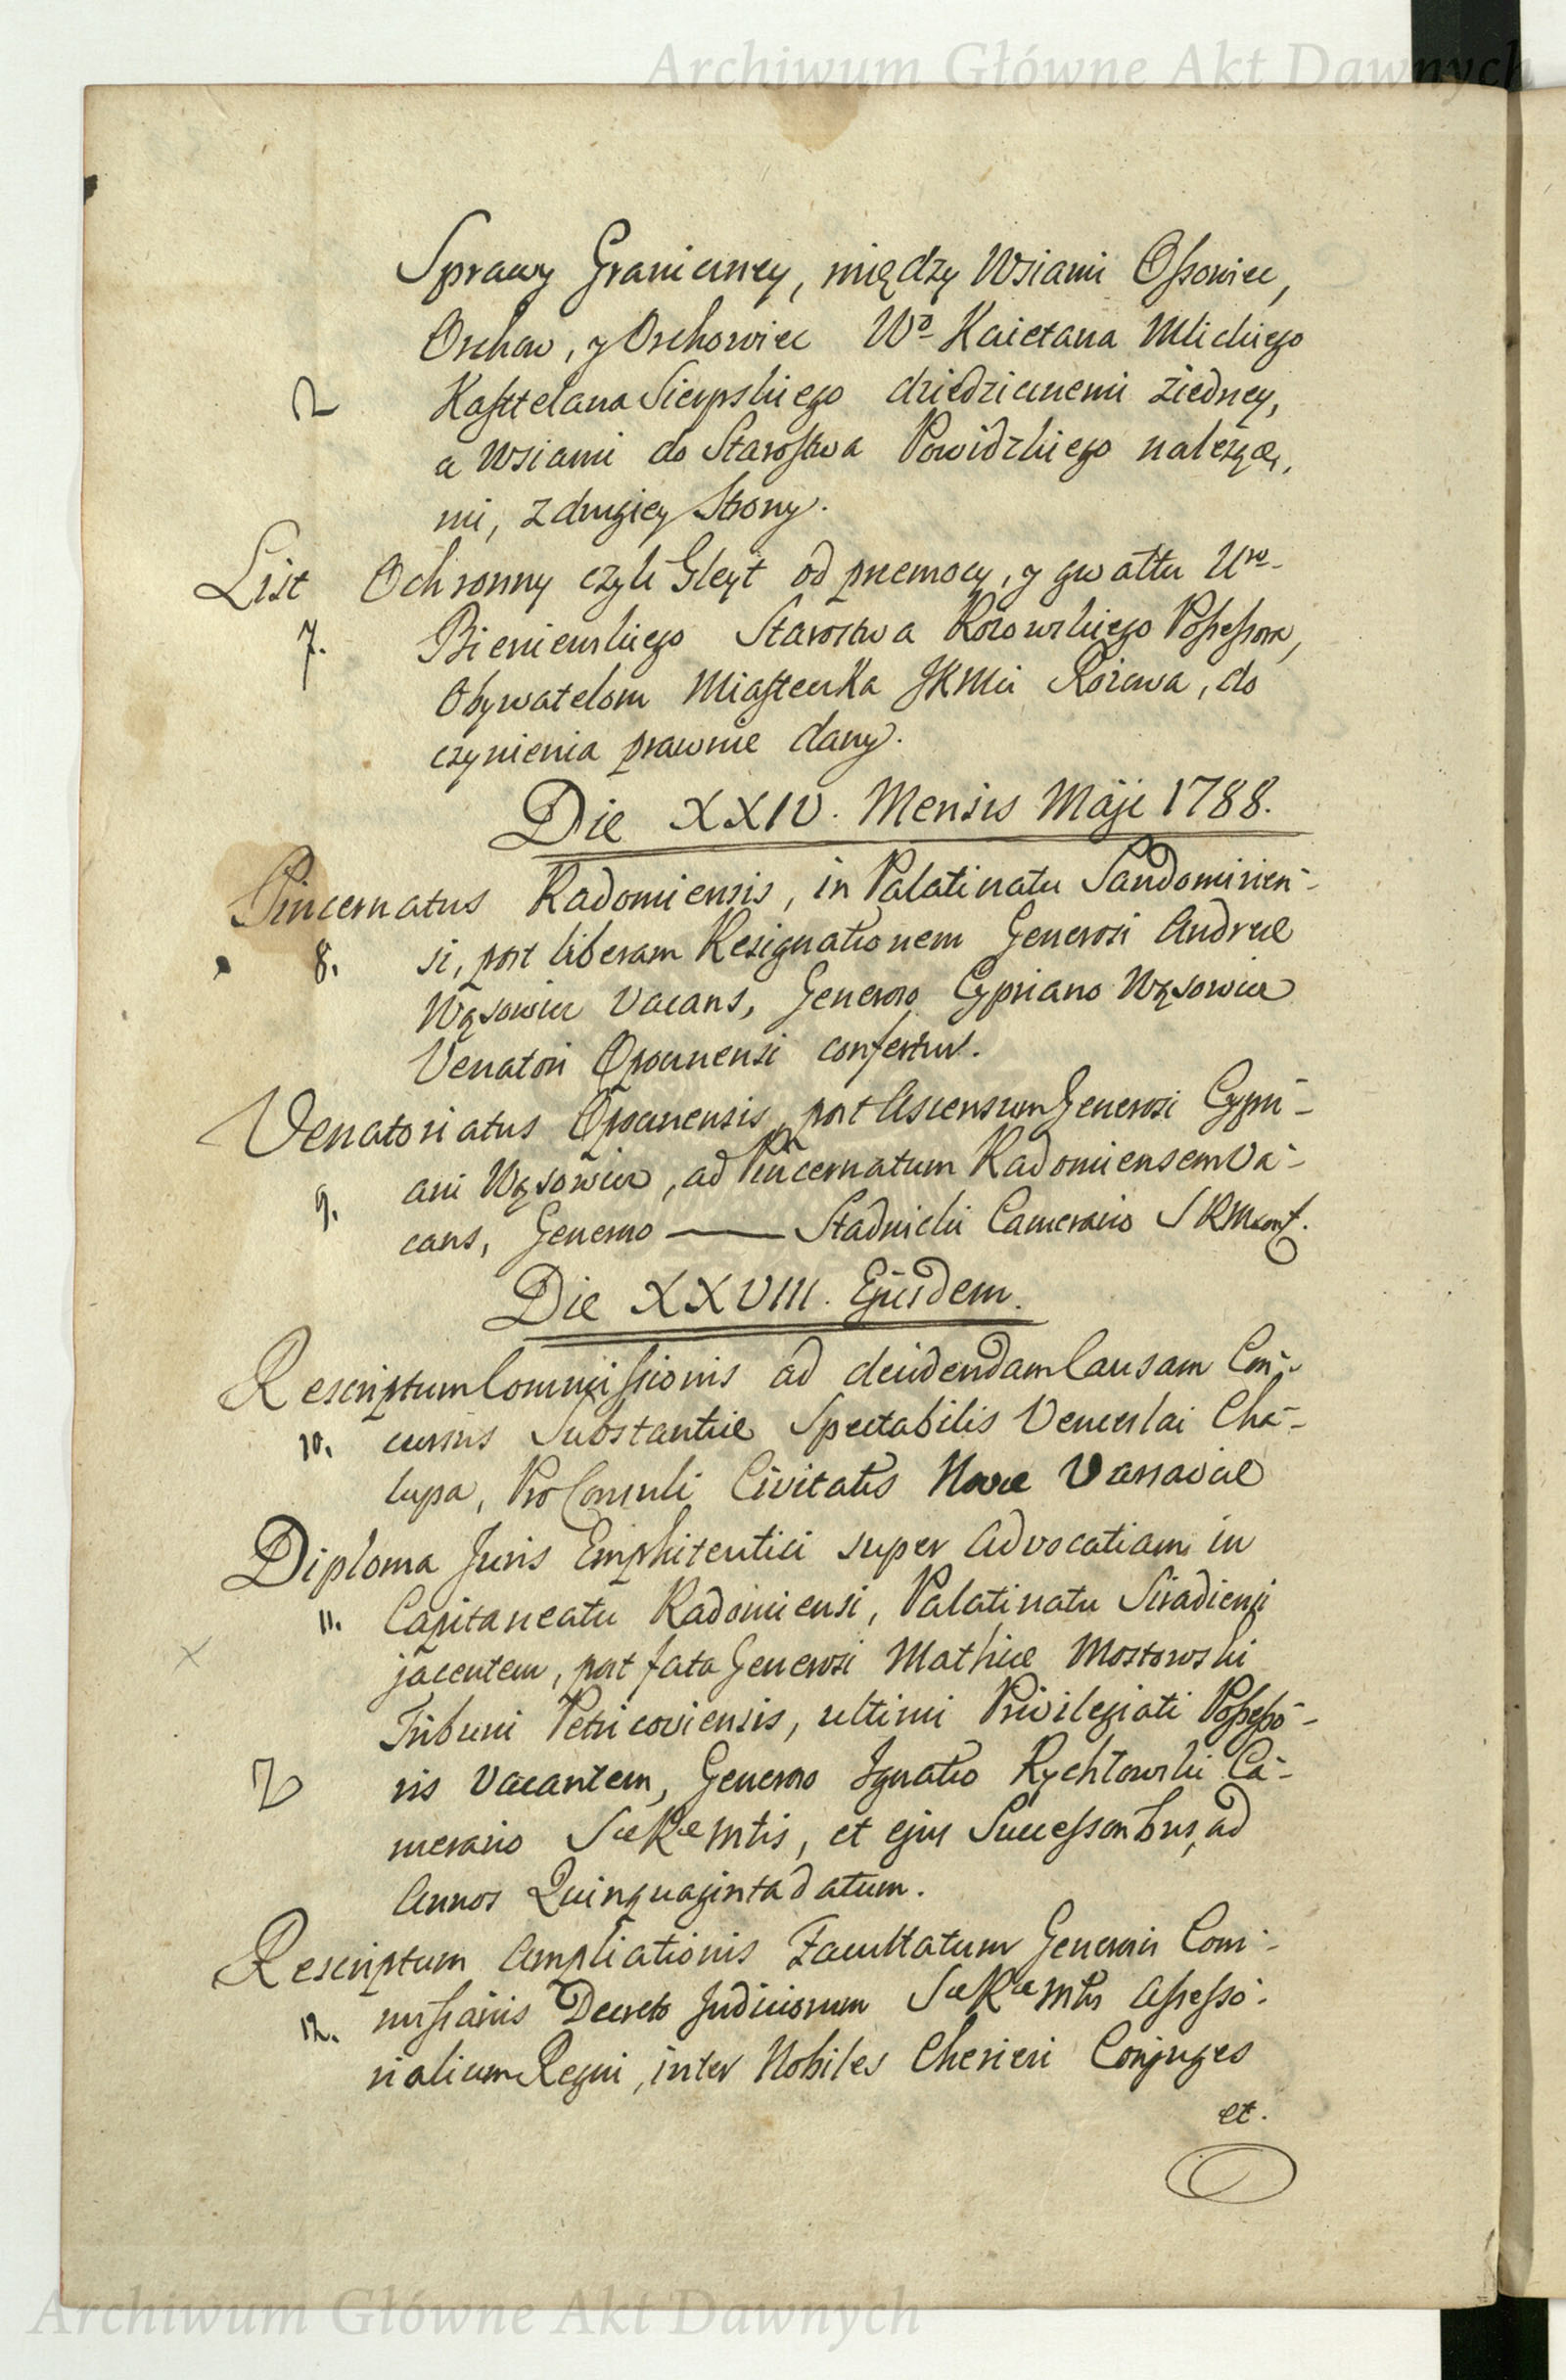 Archiwum Główne Akt Dawnych
Sprawy Graniczney, między Wsiami Ossowiec,
Orchow, y Orchowiec Wo Kaietana Mlickiego
Kasztelana Sierpskiego dziedzicznemi z iedney,
a Wsiami do Starostwa Powidzkiego należące,
mi, z drugiey strony.
List Ochronny czyli Gleyt od przemocy, y gwałtu Uro
7. Bieniewskiego Starostwa Possessora,
Obywatelom Miasteczka JKMci, do
czynienia prawnie dany.
Die XXIV. Mensis Maji 1788.
Pincernatus Radomiensis, in Palatinatu Sandomirien-
8. si, post liberam Resignationem Generosi Andreæ
Wąsowicz Vacans, Generoso Cypriano Wąsowicz
Venatori Opocznensi confertur.
Venatoriatus Opocznensis, post Ascensum Generosi Cypri-
9. ani Wąsowicz, ad Pincernatum Radomiensem Va-
cans, Generoso —— Stadnicki Camerario SRM conf.
Die XXVIII. Ejusdem.
Rescriptum Commissionis ad decidendam Causam Con-
10. cursus Substantiæ Spectabilis Venceslai Cha-
lupa, ProConsuli Civitatis Novæ Varsaviæ
Diploma Juris Emphiteutici super Advocatiam in
11. Capitaneatu Radomiensi, Palatinatu Siradiensi
jacentem, post fata Generosi Mathiæ Mostowski
Tribuni Petricoviensis, ultimi Privilegiati Possesso-
ris Vacantem, Generoso Ignatio Rychłowski Ca-
merario SæRæMtis, et ejus Successoribus, ad
Annos Quinquaginta datum.
Rescriptum Ampliationis Facultatum Generosis Com-
12. missariis Decreto Judiciorum SæRæMtis Assesso-
rialium Regni, inter Nobiles Conjuges
et.
Archiwum Główne Akt Dawnych